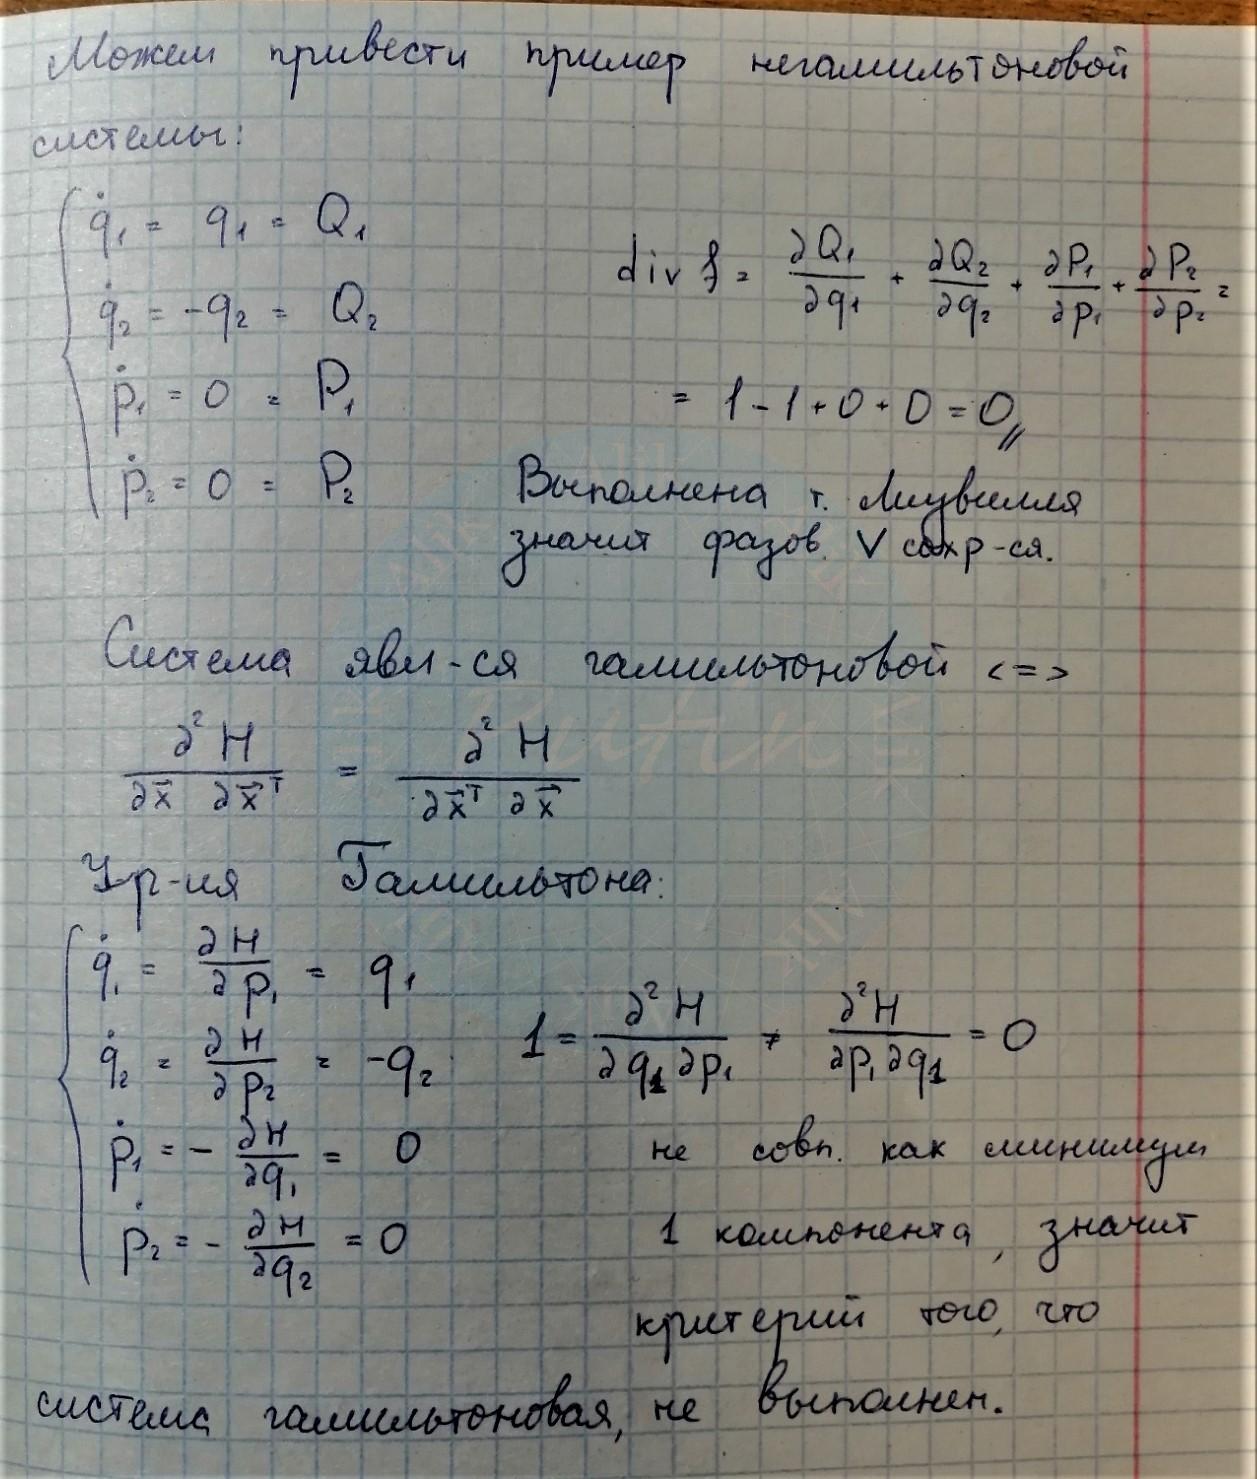 Можем привести пример негамильтоновой
системы:
q̇₁ = q₁ = Q₁
q̇₂ = -q₂ = Q₂
ṗ₁ = 0 = P₁
ṗ₂ = 0 = P₂
div f = ∂Q₁/∂q₁ + ∂Q₂/∂q₂ + ∂P₁/∂p₁ + ∂P₂/∂p₂ =
= 1 - 1 + 0 + 0 = 0
Выполнена т. Лиувилля
значит фазов. V сохр-ся.
Система явл-ся гамильтоновой <=>
∂²H/∂x⃗ ∂x⃗ᵀ = ∂²H/∂x⃗ᵀ ∂x⃗
Ур-ия Гамильтона:
q̇₁ = ∂H/∂p₁ = q₁
q̇₂ = ∂H/∂p₂ = -q₂
ṗ₁ = - ∂H/∂q₁ = 0
ṗ₂ = - ∂H/∂q₂ = 0
1 = ∂²H/∂q₁∂p₁ ≠ ∂²H/∂p₁∂q₁ = 0
не совп. как минимум
1 компонента, значит
критерий того, что
система гамильтоновая, не выполнен.